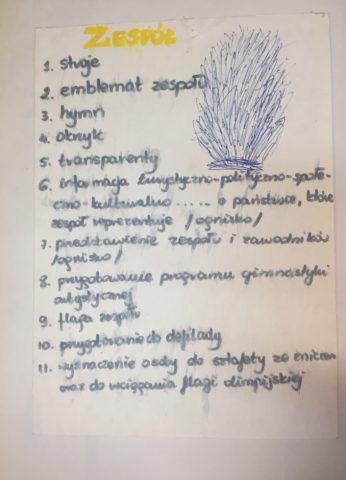 ZESPÓŁ
1. stroje
2. emblemat zespołu
3. hymn
4. okrzyk
5. transparenty
6. informacja turystyczno-polityczno-społe-
czno-kulturalno ..... o państwie, które
zespół reprezentuje /ognisko/
7. przedstawienie zespołu i zawodników
/ognisko/
8. przygotowanie programu gimnastyki
artystycznej
9. flaga zespołu
10. przygotowanie do defilady
11. wyznaczenie osoby do sztafety ze zniczem
oraz do wciągania flagi olimpijskiej